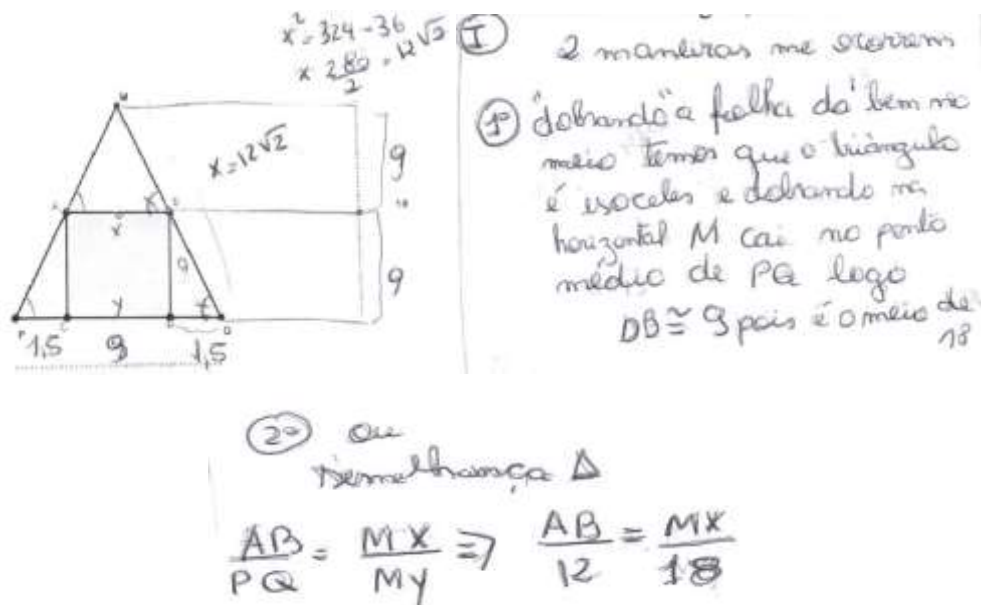 x² = 324 - 36
x 280/2 = 12√2
x = 12√2
M
9
x
9
9
y
P
C
1,5
9
1,5
I
2 maneiras me ocorrem
1º "dobrando" a folha dá bem no
meio temos que o triângulo
é isoceles e dobrando na
horizontal M cai no ponto
médio de PQ logo
DB ≅ 9 pois é o meio de
18
2º Ou
semelhança Δ
AB/PQ = MX/MY => AB/12 = MX/18